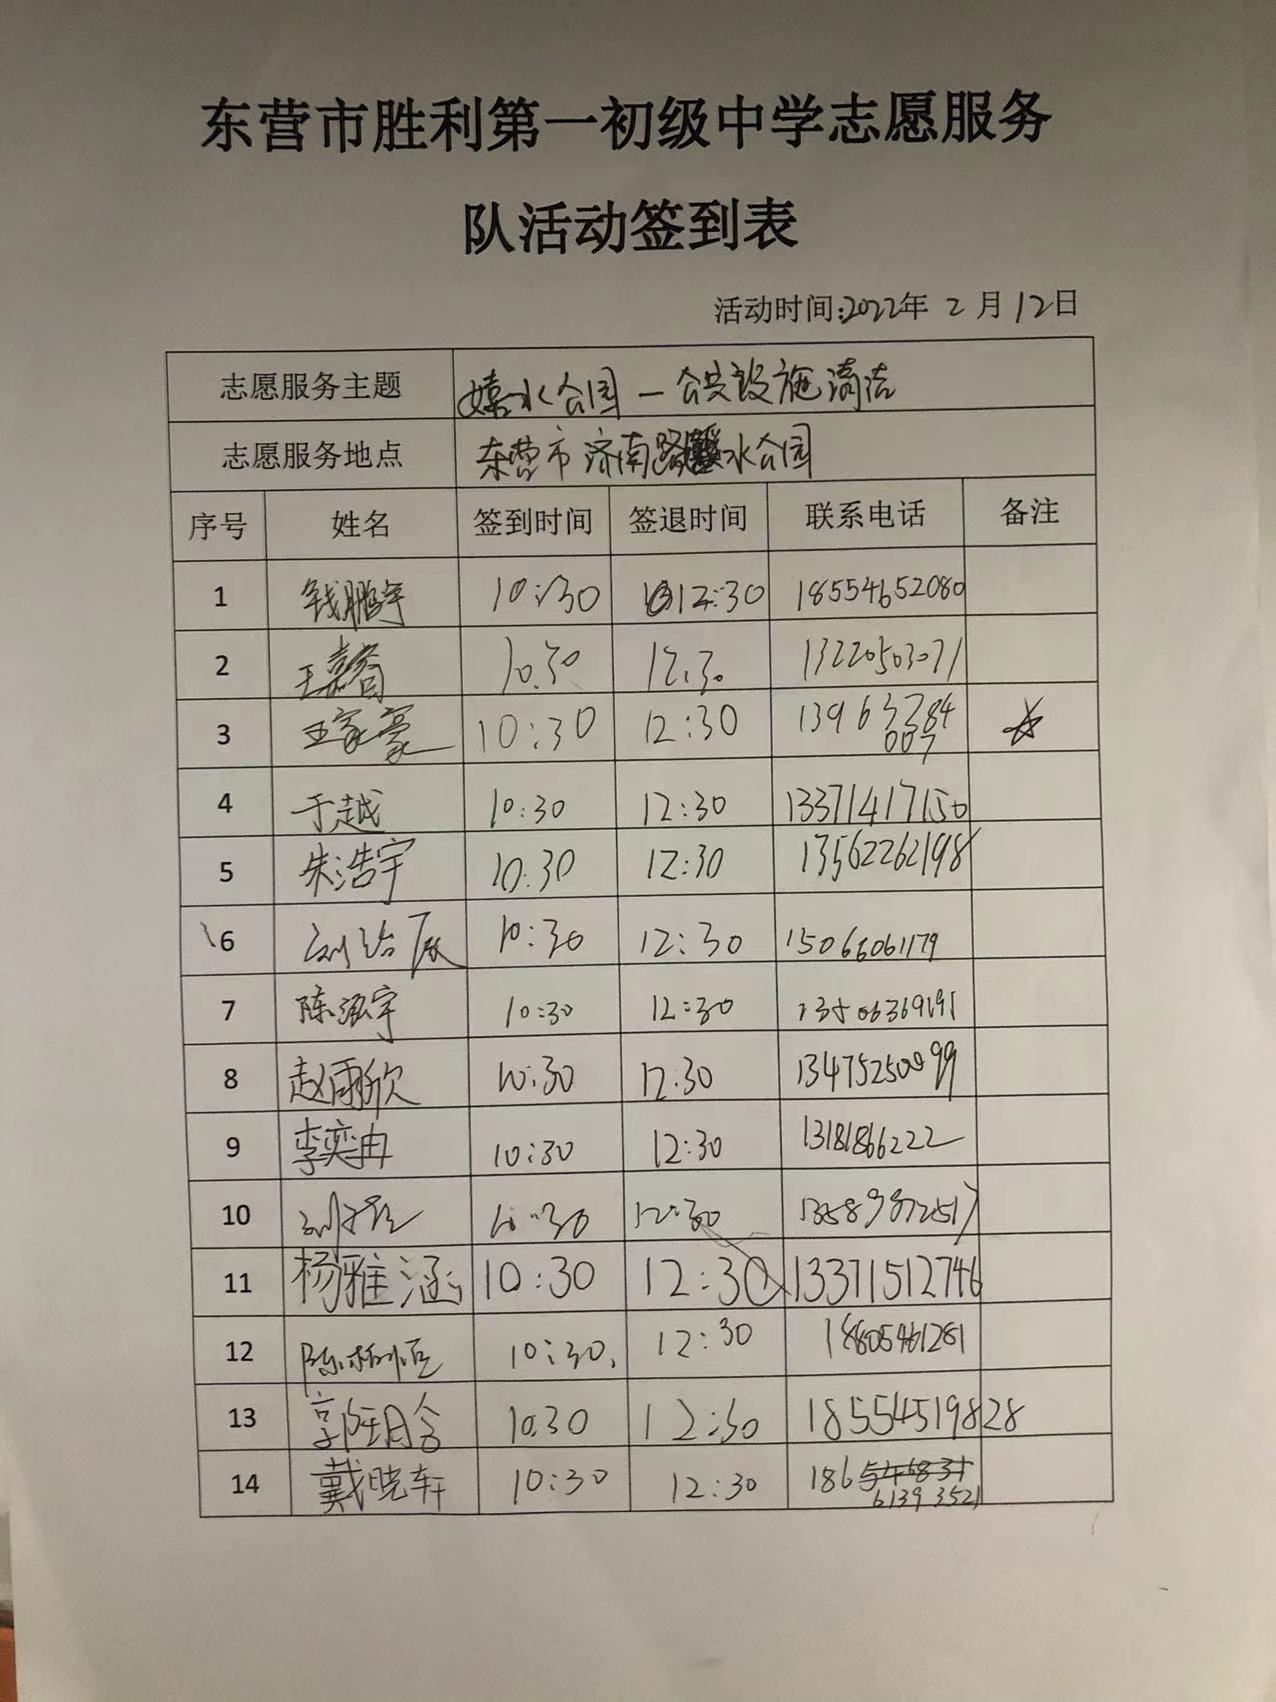 东营市胜利第一初级中学志愿服务
队活动签到表
活动时间:2022年 2 月 12日
志愿服务主题 嬉水公园—公共设施清洁
志愿服务地点 东营市济南路 水公园
序号 姓名 签到时间 签退时间 联系电话 备注
1 钱鹏宇 10:30 12:30 18554652080
2 王嘉 10:30 12:30 13220503071
3 王家豪 10:30 12:30 13963284
007
☆
4 于越 10:30 12:30 13371417150
5 朱浩宇 10:30 12:30 13562262198
6 刘治辰 10:30 12:30 15066061179
7 陈泓宇 10:30 12:30
8 赵雨欣 10:30 12:30 13475250099
9 李奕冉 10:30 12:30 13181866222
10 10:30 12:30 13589972517
11 杨雅涵 10:30 12:30 13371512746
12 陈柏恒 10:30 12:30 18805461281
13 郭钰晗 10:30 12:30 18554519828
14 戴晓轩 10:30 12:30 186
6139 3521